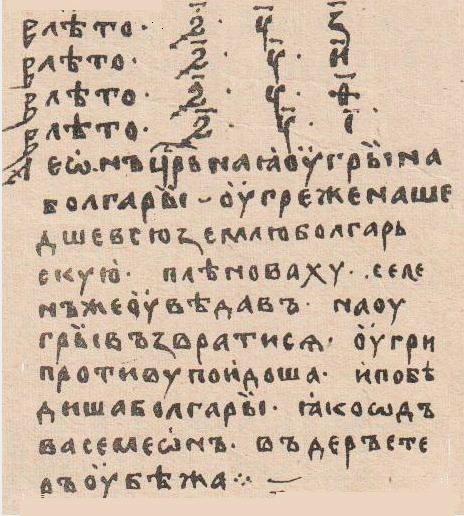 влѣто· ҂ѕ҃· у҃· з҃
влѣто· ҂ѕ҃· у҃· и҃
влѣто· ҂ѕ҃· у҃· ѳ҃·
влѣто· ҂ѕ҃· у҃· і҃
Леѡ.нъцр҃ьнаꙗоугрꙑна
болгарꙑ – оугреженаше
дшевсюземлюболгарь
скую· плѣноваху· .селе
нъжеоувѣдавъ· наоу
грꙑвъзвратисѧ· оугри
противупоидоша· ипобѣ
дишаболгарꙑ· ꙗкоѡдъ
васемеѡнъ· въдеръсте
ръоубѣжа⁘ –